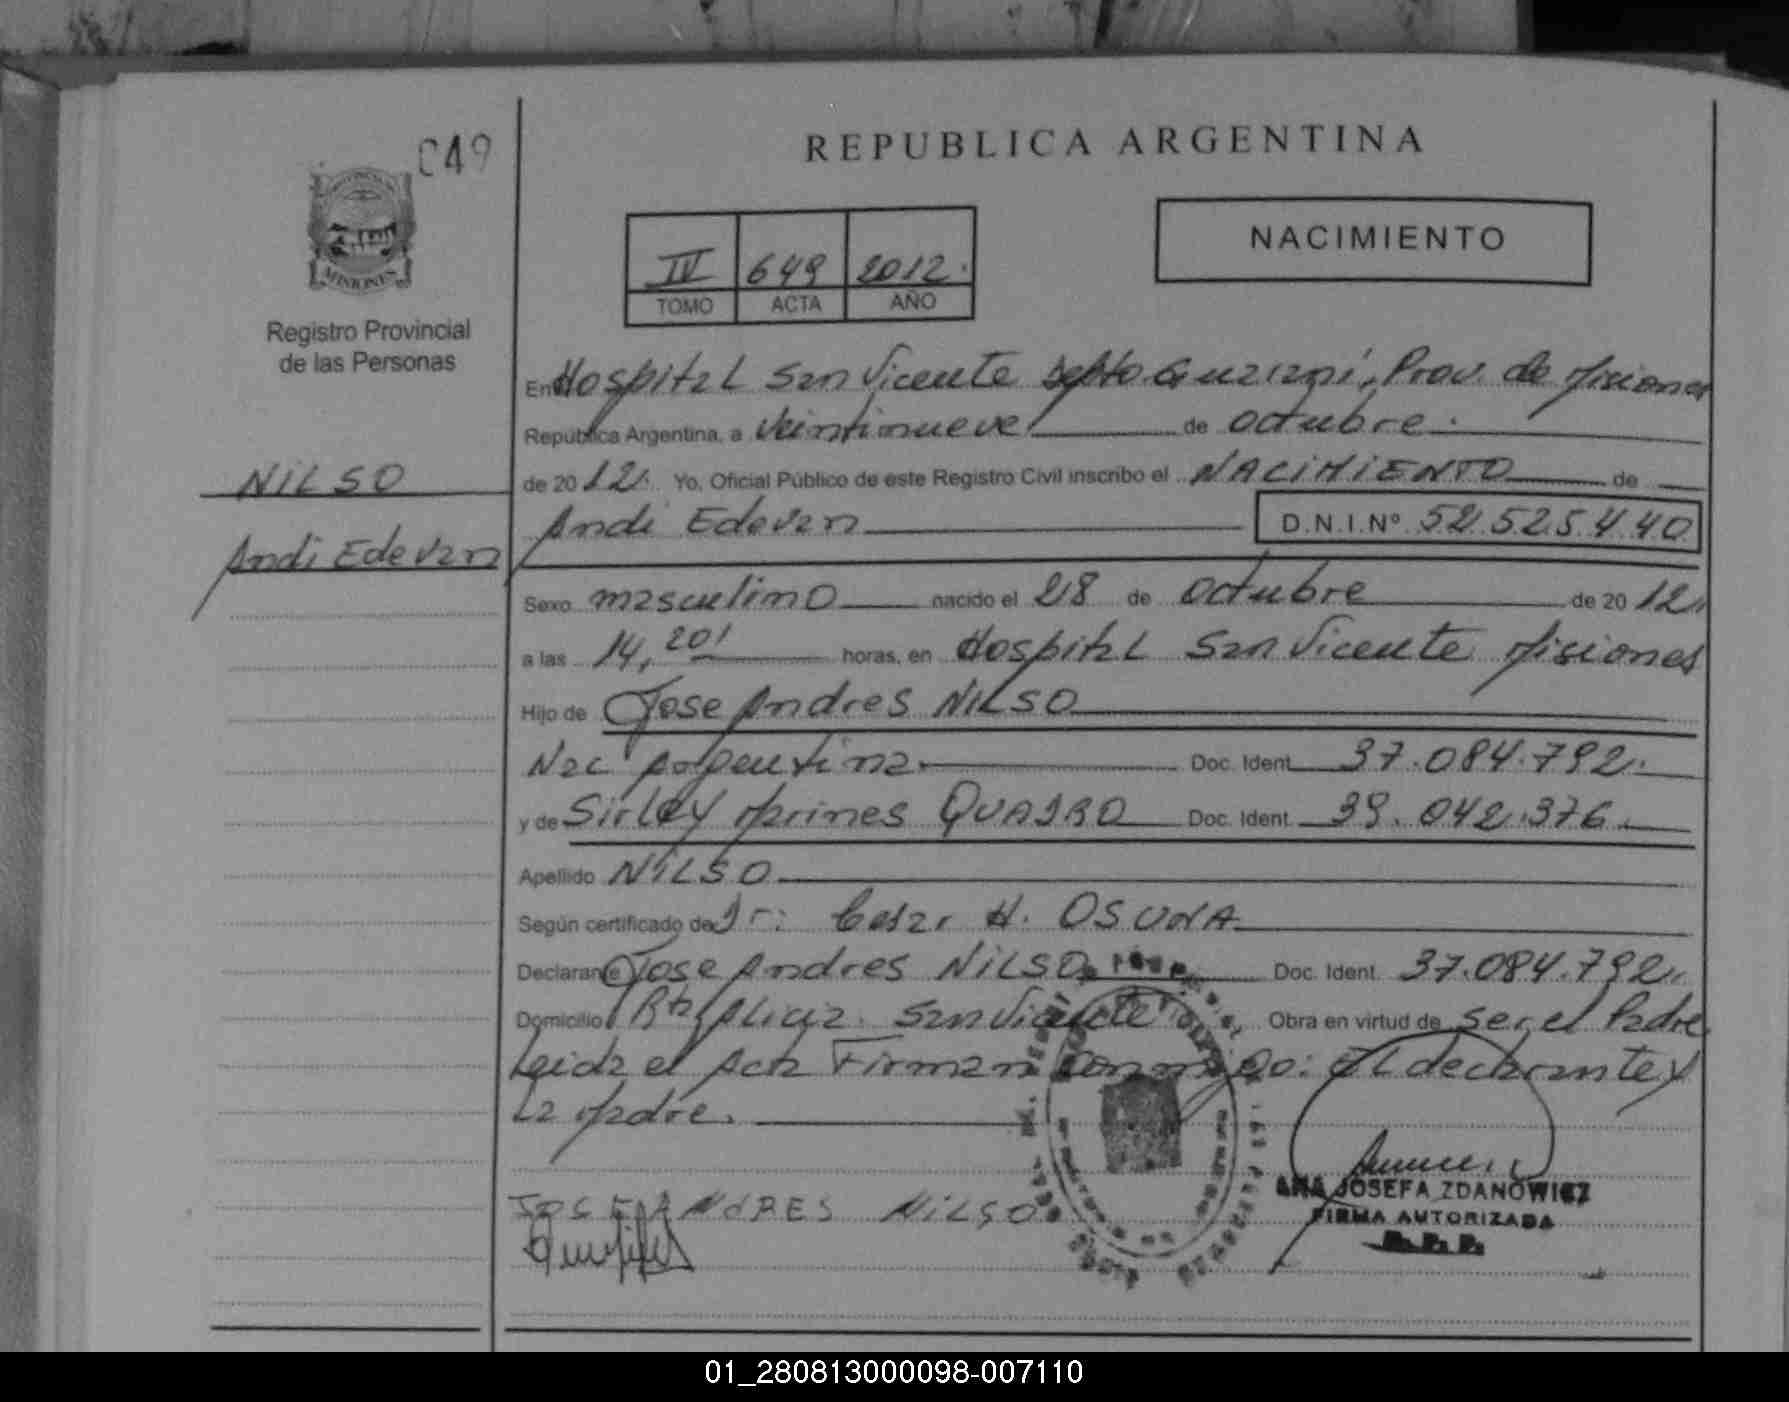 049
REPUBLICA ARGENTINA
NACIMIENTO
IV 649 2012.
TOMO ACTA AÑO
MISIONES
Registro Provincial
de las Personas
En Hospital San Vicente Dpto. Guaraní, Prov. de Misiones
República Argentina, a veintinueve de octubre.
de 2012. Yo, Oficial Público de este Registro Civil inscribo el NACIMIENTO de
NILSO
Andi Edevan
Andi Edevan D.N.I.Nº 52.525.440
Sexo masculino nacido el 28 de octubre de 2012,
a las 14,20' horas, en Hospital San Vicente Misiones
Hijo de Jose Andres NILSO
Nac Argentina. Doc. Ident. 37.084.792.
y de Sirley Marines QUADRO Doc. Ident. 39.042.376.
Apellido NILSO
Según certificado de Dr: Cesar H. OSUNA
Declarante Jose Andres NILSO Doc. Ident. 37.084.792.
Domicilio Alicia. San Vicente Obra en virtud de ser el Padre
Leida el Acta Firman conmigo: El declarante y
La Madre.
JOSE ANDRES NILSO
ANA JOSEFA ZDANOWICZ
FIRMA AUTORIZADA
01_280813000098-007110